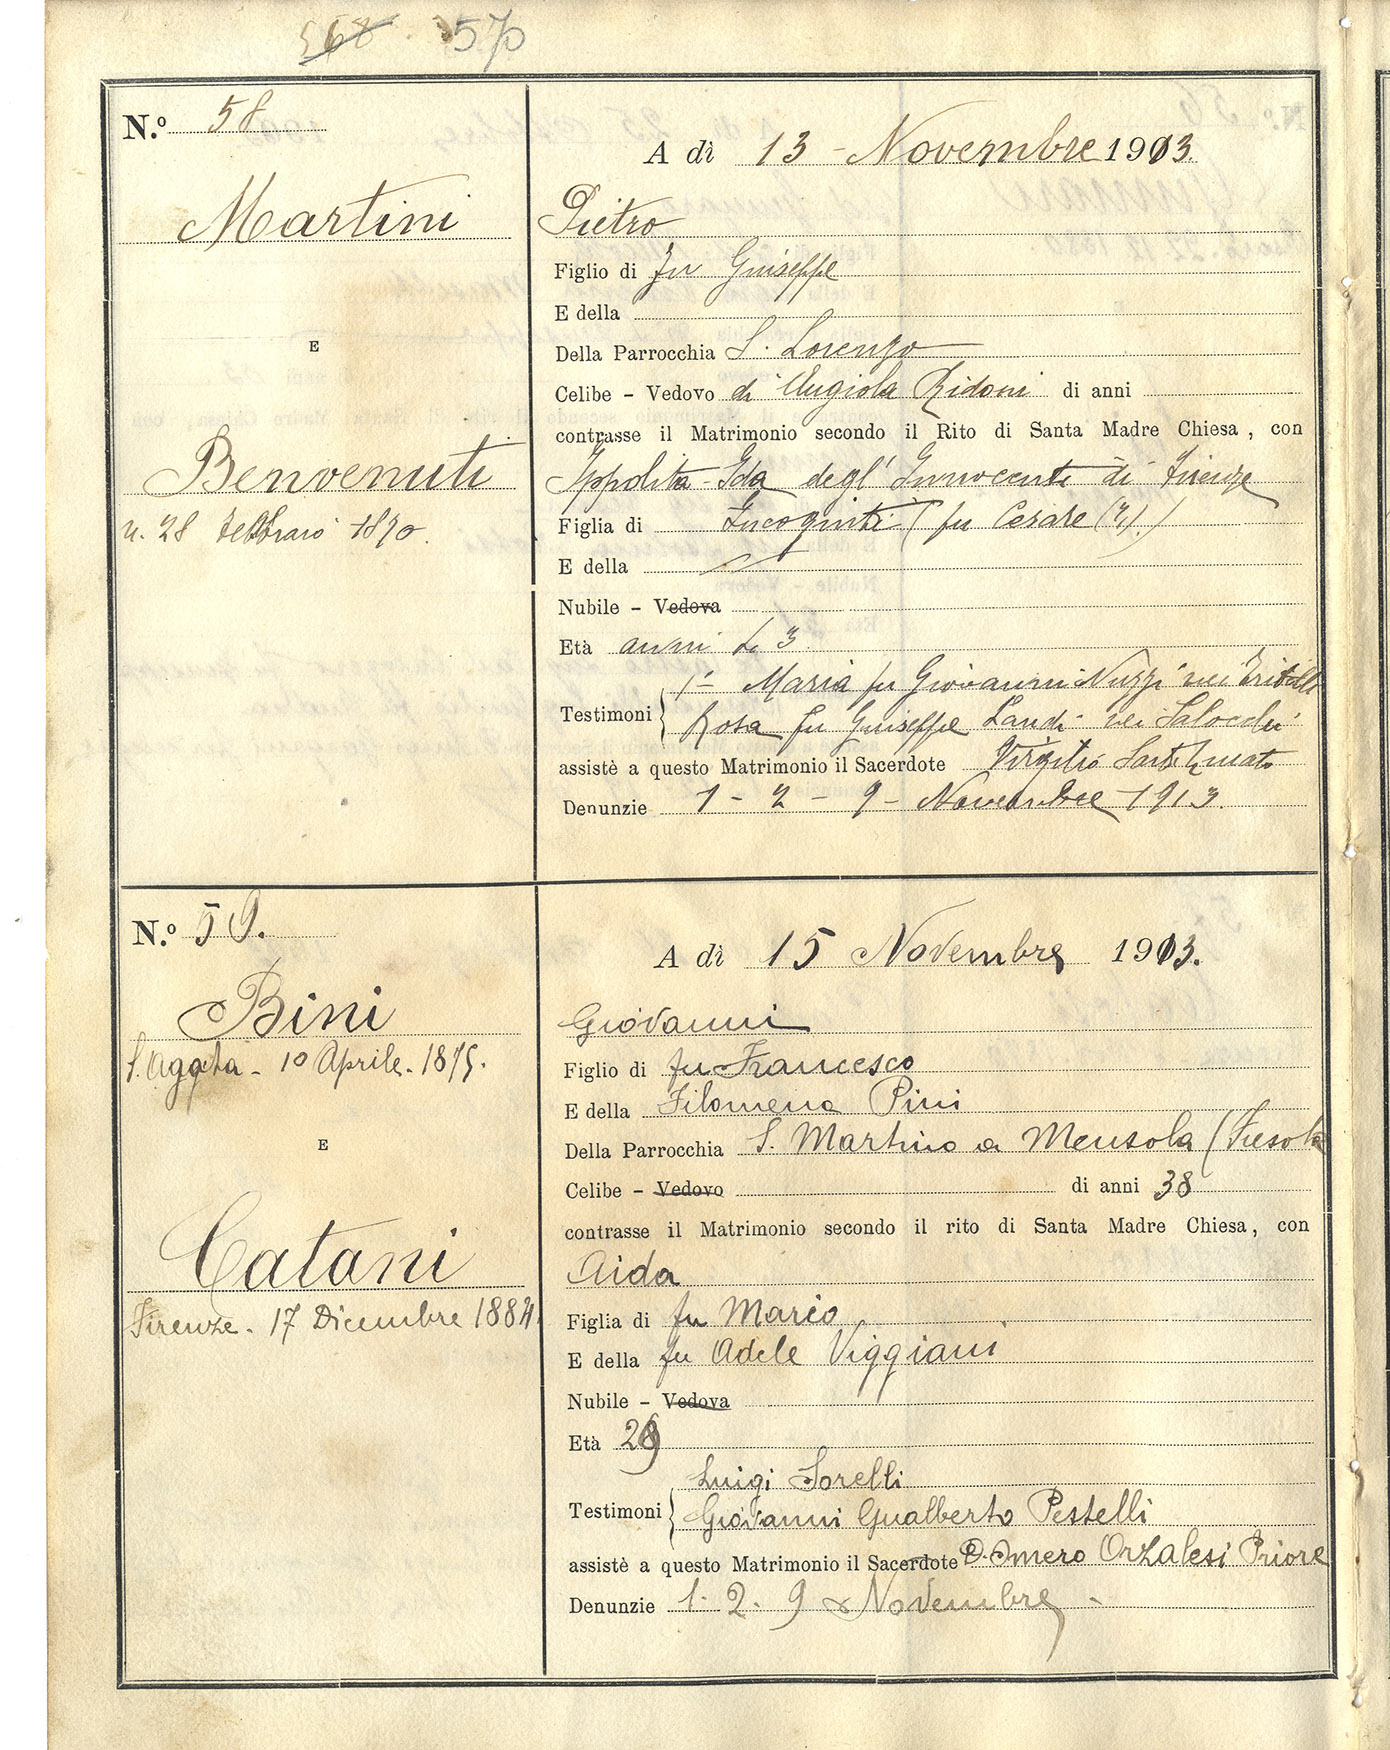 568 570
N.º 58
A dì 13 - Novembre 1913.
Martini
Pietro
Figlio di fu Giuseppe
E della
E
Della Parrocchia S. Lorenzo
Celibe - Vedovo di Angiola Ridoni di anni
contrasse il Matrimonio secondo il Rito di Santa Madre Chiesa, con
Benvenuti
Ippolita - Ida degl' Innocenti di Firenze
n. 28 Febbraio 1870.
Figlia di Incogniti (fu Cesare
E della
Nubile - Vedova
Età anni 43
1º Maria fu Giovanni Nuzzi nei
Testimoni
Rosa fu Giuseppe Landi nei
assistè a questo Matrimonio il Sacerdote Virgilio
Denunzie 1 - 2 - 9 - Novembre 1913.
N.º 59.
A dì 15 Novembre 1913.
Bini
Giovanni
S. Agata - 10 Aprile - 1875.
Figlio di fu Francesco
E della Filomena Pini
E
Della Parrocchia S. Martino a Mensola (Fiesole
Celibe - Vedovo di anni 38
contrasse il Matrimonio secondo il rito di Santa Madre Chiesa, con
Catani
Aida
Firenze - 17 Dicembre 1884
Figlia di fu Mario
E della fu Adele Viggiani
Nubile - Vedova
Età 29
Luigi Sorelli
Testimoni
Giovanni Gualberto Pestelli
assistè a questo Matrimonio il Sacerdote D. Imero Orzalesi Priore
Denunzie 1. 2. 9 Novembre -